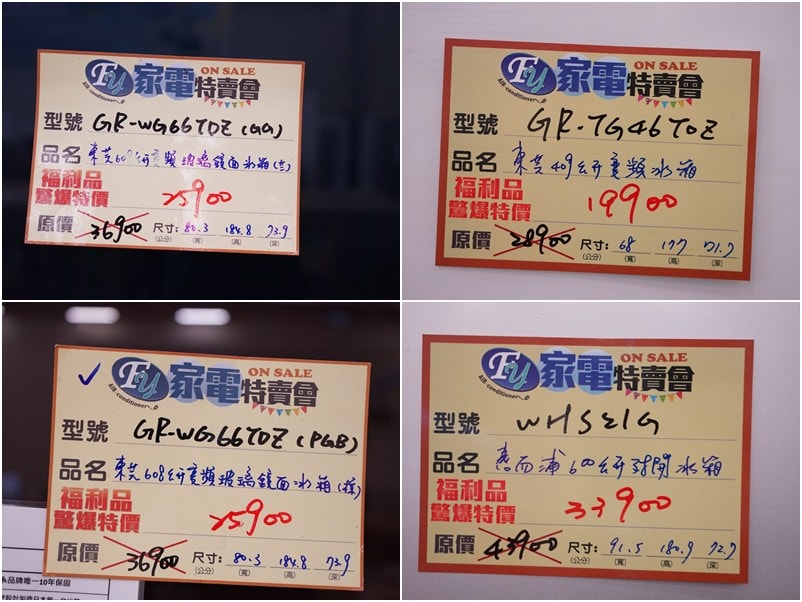 Fy 家電特賣會
ON SALE
AIR-conditioner
型號 GR-WG66TDZ (GG)
品名 東芝608公升變頻玻璃鏡面冰箱
福利品
驚爆特價 25900
原價 36900 尺寸: 80.3 184.8 73.9
(公分) (寬) (高) (深)
Fy 家電特賣會
ON SALE
AIR-conditioner
型號 GR-TG46TDZ
品名 東芝409公升變頻冰箱
福利品
驚爆特價 19900
原價 28900 尺寸: 68 177 71.7
(公分) (寬) (高) (深)
✓ Fy 家電特賣會
ON SALE
AIR-conditioner
型號 GR-WG66TDZ (PGB)
品名 東芝608公升變頻玻璃鏡面冰箱
福利品
驚爆特價 25900
原價 36900 尺寸: 80.3 184.8 73.9
(公分) (寬) (高) (深)
品牌唯一10年保固
Fy 家電特賣會
ON SALE
AIR-conditioner
型號 WHS21G
品名 惠而浦600公升對開冰箱
福利品
驚爆特價 33900
原價 43900 尺寸: 91.5 180.9 72.7
(公分) (寬) (高) (深)